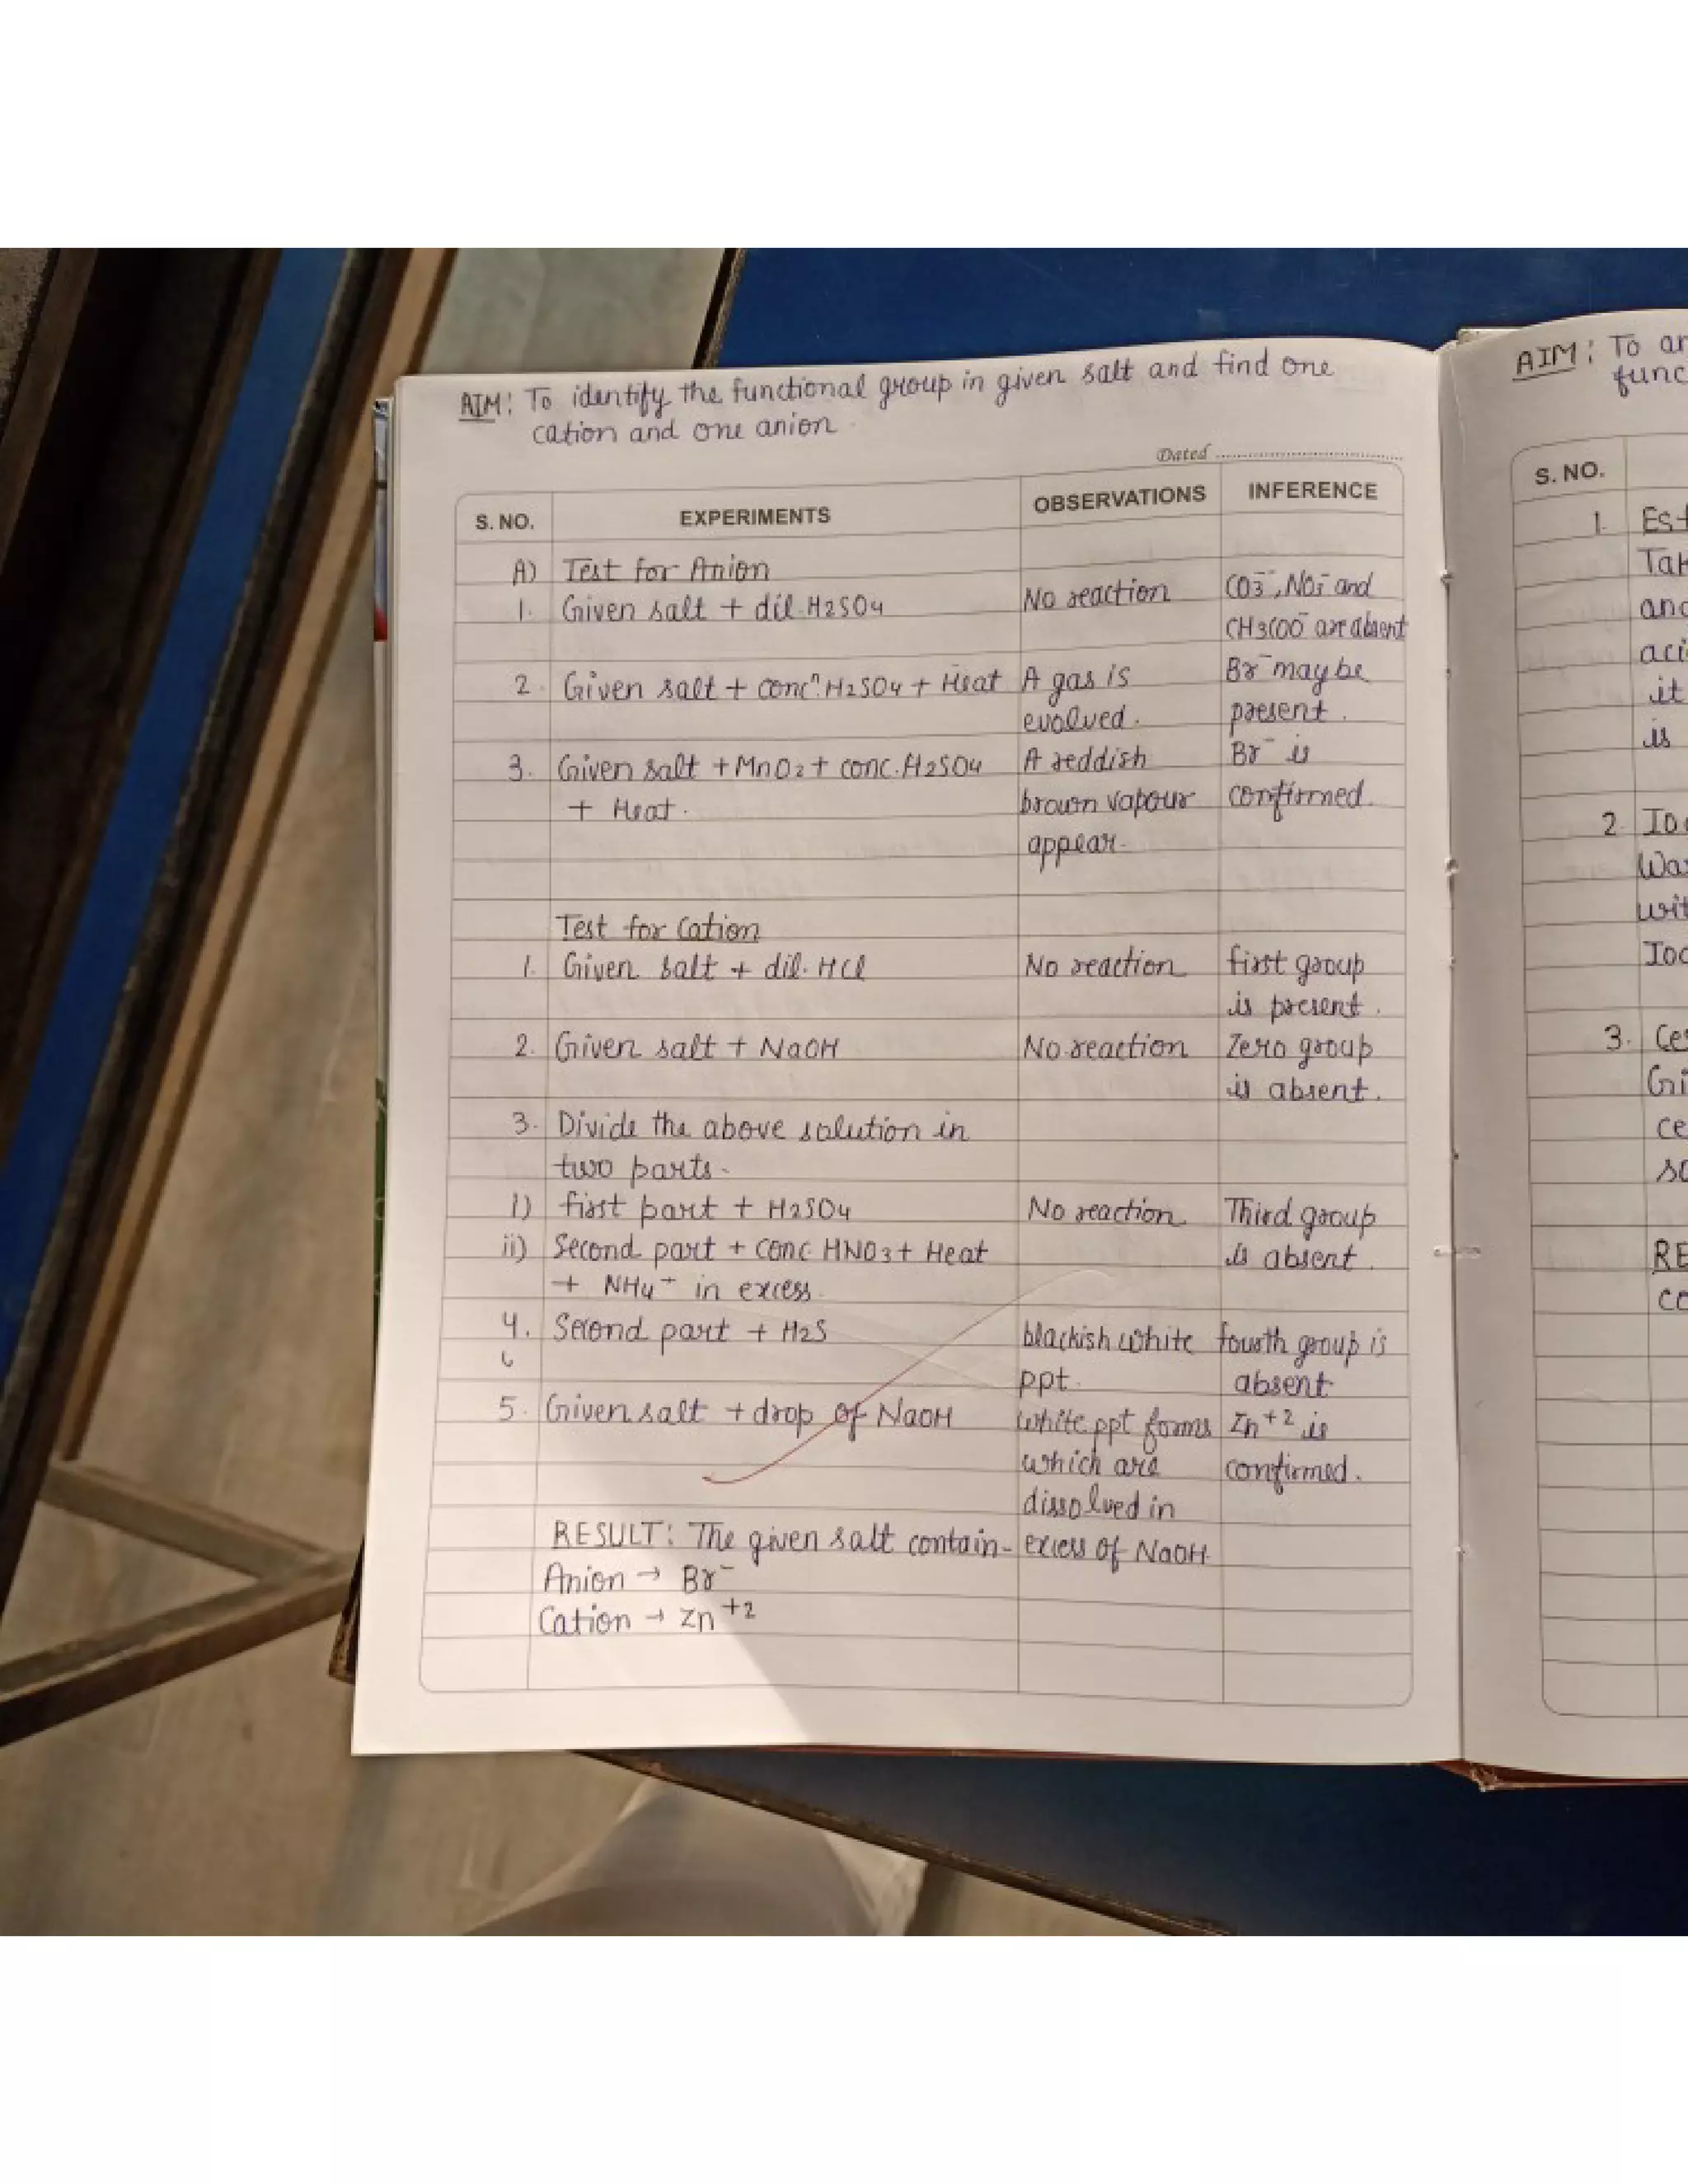 AIM: To identify the functional group in given salt and find one
cation and one anion
Dated
S. NO. EXPERIMENTS OBSERVATIONS INFERENCE
A) Test for Anion
1. Given salt + dil. H2SO4 No reaction CO3--, NO2- and
CH3COO- are absent
2. Given salt + concn. H2SO4 + Heat A gas is Br- may be
evolved. present.
3. Given salt + MnO2 + conc. H2SO4 A reddish Br- is
+ Heat. brown vapour confirmed.
appear.
Test for Cation
1. Given salt + dil. HCl No reaction first group
is present.
2. Given salt + NaOH No reaction Zero group
is absent.
3. Divide the above solution in
two parts.
i) first part + H2SO4 No reaction Third group
ii) Second part + conc HNO3 + Heat is absent.
+ NH4+ in excess.
4. Second part + H2S blackish white fourth group is
ppt. absent
5. Given salt + drop of NaOH white ppt forms Zn+2 is
which are confirmed.
dissolved in
RESULT: The given salt contain- excess of NaOH.
Anion → Br-
Cation → Zn+2
AIM: To an
func
S. NO.
1. Est
Tak
and
aci
it
is
2. Io
Wa
wit
Iod
3. Ce
Gi
ce
so
RE
co